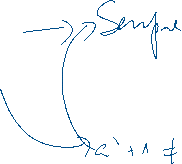 Sempre
a² + 1 ≠